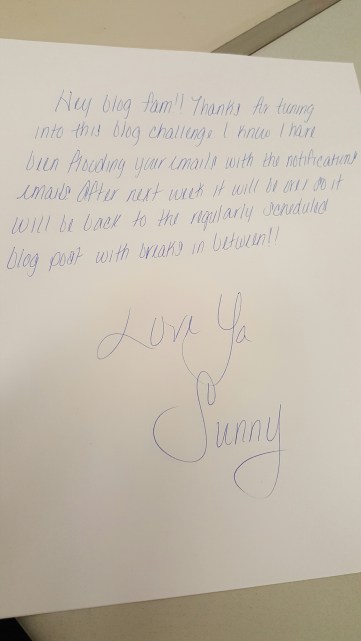 Hey blog fam!! Thanks for tuning
into this blog challenge I know I have
been flooding your emails with the notifications
emails After next week it will be over so it
will be back to the regularly scheduled
blog post with breaks in between!!
Love Ya
Sunny